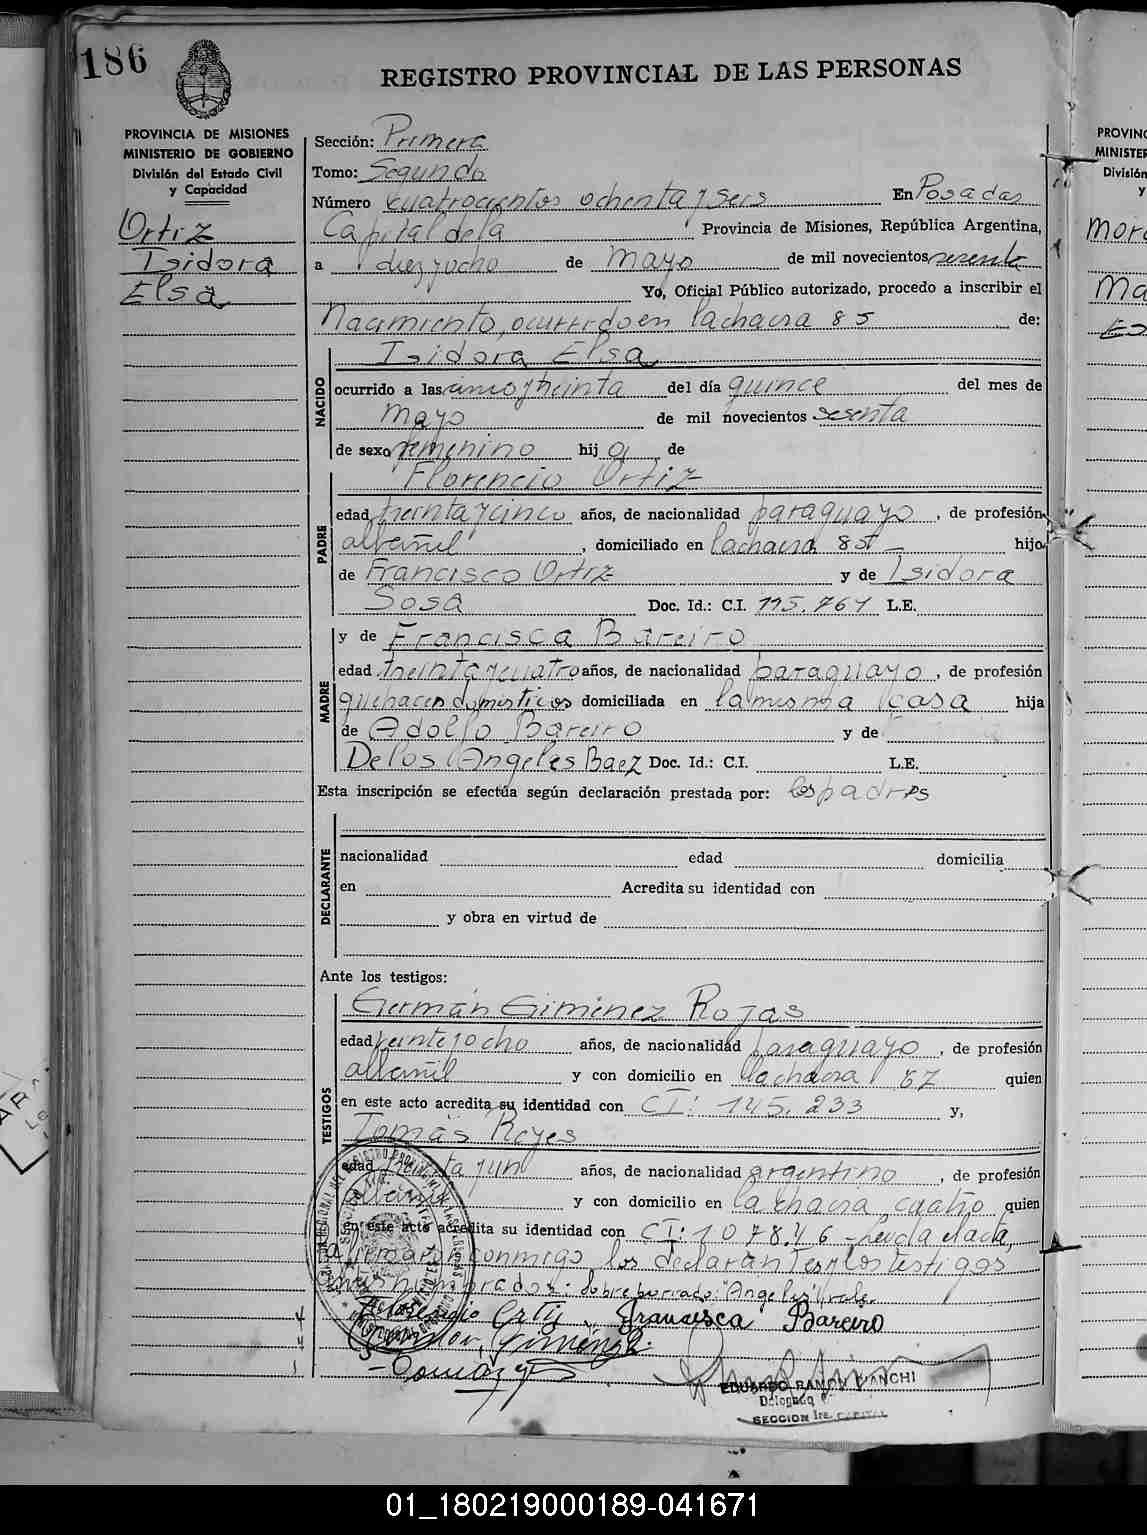 186
REGISTRO PROVINCIAL DE LAS PERSONAS
PROVINCIA DE MISIONES
MINISTERIO DE GOBIERNO
División del Estado Civil
y Capacidad
Ortiz
Isidora
Elsa
Sección: Primera
Tomo: Segundo
Número cuatrocientos ochenta y seis En Posadas
Capital de la Provincia de Misiones, República Argentina,
a diez y ocho de Mayo de mil novecientos sesenta
Yo, Oficial Público autorizado, procedo a inscribir el
Nacimiento, ocurrido en la chacra 85 de:
NACIDO
Isidora Elsa
ocurrido a las cinco y treinta del día quince del mes de
Mayo de mil novecientos sesenta
de sexo femenino hij a de
PADRE
Florencio Ortiz
edad treinta y cinco años, de nacionalidad paraguayo, de profesión
albañil, domiciliado en la chacra 85 hijo
de Francisco Ortiz y de Isidora
Sosa Doc. Id.: C.I. 115.764 L.E.
MADRE
y de Francisca Bareiro
edad treinta y cuatro años, de nacionalidad paraguayo, de profesión
quehaceres domésticos domiciliada en la misma casa hija
de Adolfo Bareiro y de
De los Angeles Baez Doc. Id.: C.I. L.E.
Esta inscripción se efectúa según declaración prestada por: los padres
DECLARANTE
nacionalidad edad domicilia
en Acredita su identidad con
y obra en virtud de
Ante los testigos:
TESTIGOS
Germán Giménez Rojas
edad veinte y ocho años, de nacionalidad paraguayo, de profesión
albañil y con domicilio en la chacra 87 quien
en este acto acredita su identidad con CI: 145.233 y,
Tomás Reyes
edad treinta y un años, de nacionalidad argentino, de profesión
albañil y con domicilio en la chacra cuatro quien
en este acto acredita su identidad con CI: 107846 - Leída el acta,
la firmaron conmigo los declarantes y los testigos
sobre borrado: "Angeles", vale.
Ortiz Francisca Bareiro
Giménez
EDUARDO RAMON BIANCHI
Delegado
SECCION 1ra. CAPITAL
PROVINC
MINISTER
División
y
Mor
Ma
01_180219000189-041671